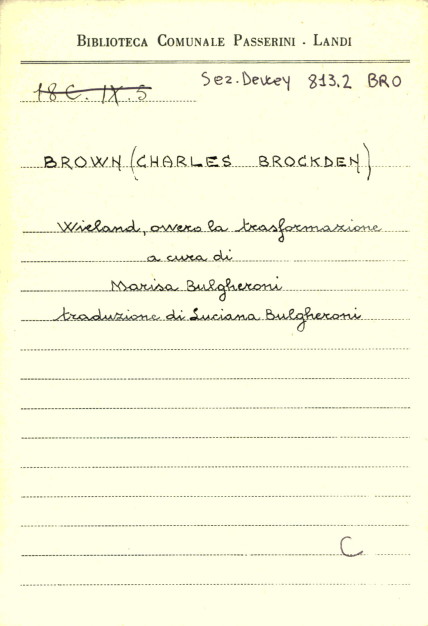 BIBLIOTECA COMUNALE PASSERINI - LANDI
Sez. Dewey 813.2 BRO
18 C. IX. 5
BROWN (CHARLES BROCKDEN)
Wieland, ovvero la trasformazione
a cura di
Marisa Bulgheroni
traduzione di Luciana Bulgheroni
C